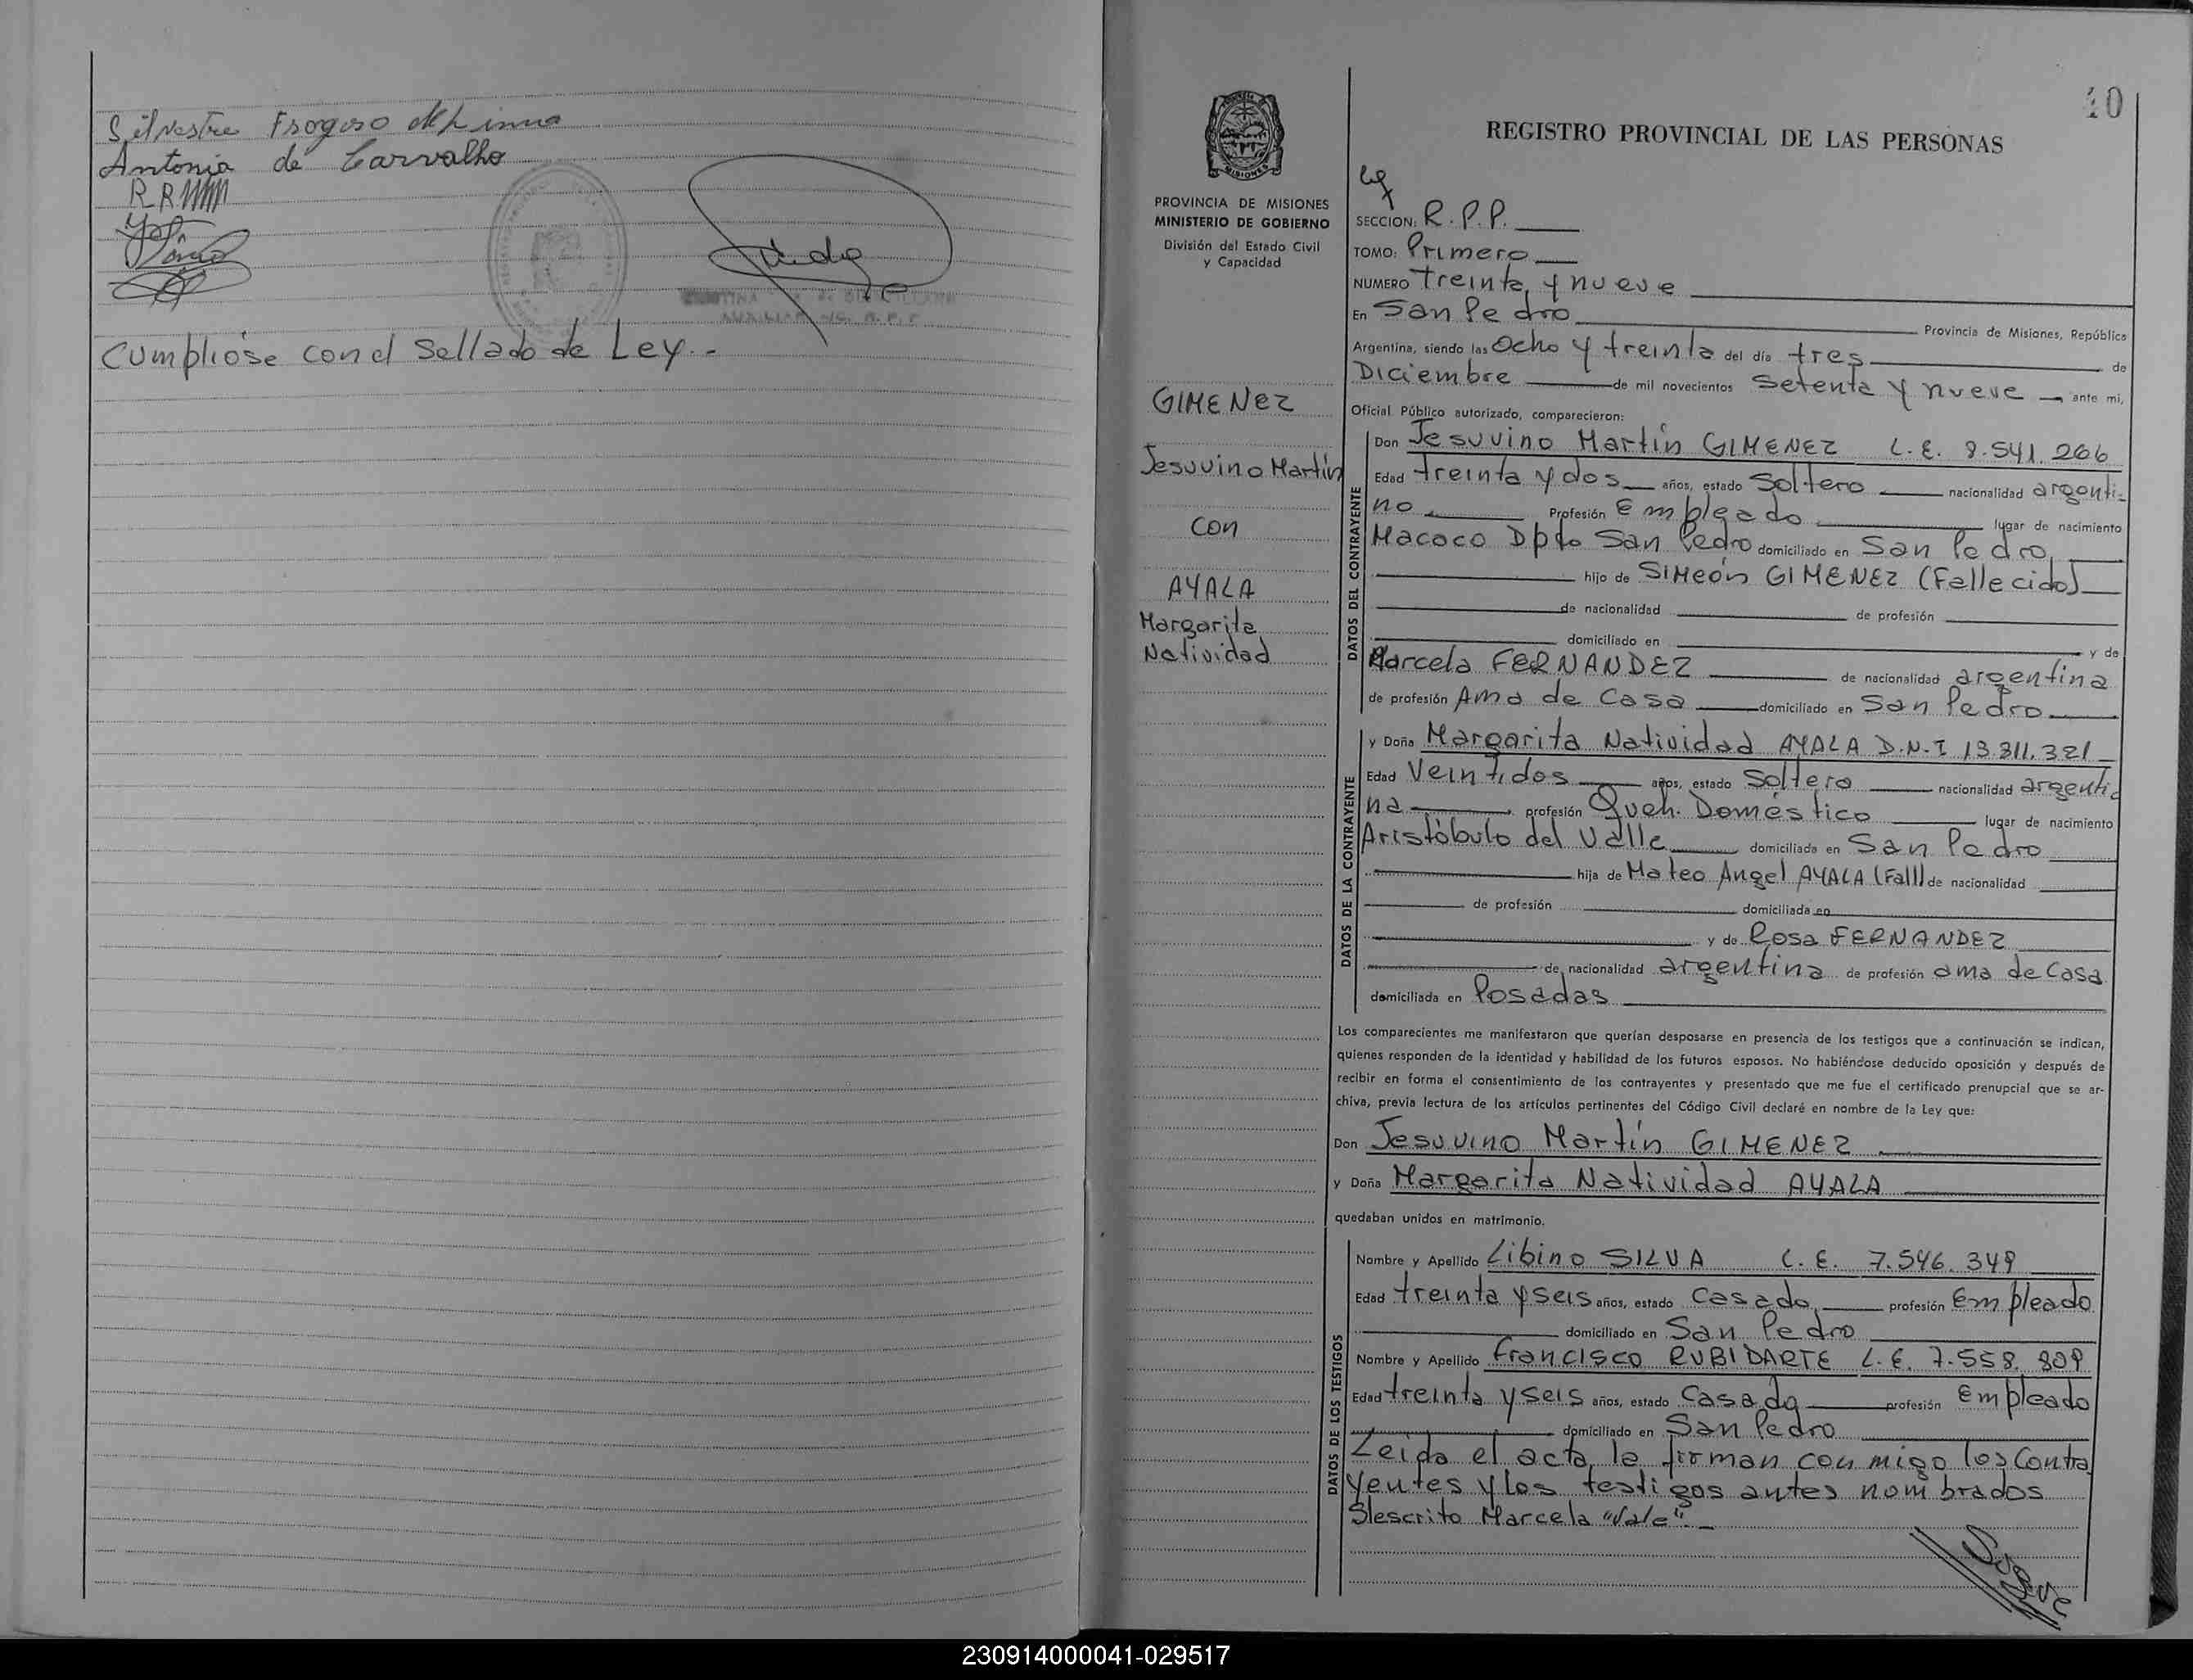 Silvestre
Antonia de Carvalho
Cumplióse con el Sellado de Ley.-
40
REGISTRO PROVINCIAL DE LAS PERSONAS
PROVINCIA DE MISIONES
MINISTERIO DE GOBIERNO
División del Estado Civil
y Capacidad
GIMENEZ
Jesuvino Martín
con
AYALA
Margarita
Natividad
SECCION: R.P.P.
TOMO: Primero
NUMERO Treinta y nueve
En San Pedro Provincia de Misiones, República
Argentina, siendo las Ocho y treinta del día tres de
Diciembre de mil novecientos setenta y nueve ante mi,
Oficial Público autorizado, comparecieron:
DATOS DEL CONTRAYENTE
Don Jesuvino Martín GIMENEZ L.E. 8.541.266
Edad treinta y dos años, estado Soltero nacionalidad argenti-
no Profesión Empleado lugar de nacimiento
Macoco Dpto San Pedro domiciliado en San Pedro
hijo de SIMeón GIMENEZ (Fallecido)
de nacionalidad de profesión
domiciliado en y de
Marcela FERNANDEZ de nacionalidad argentina
de profesión Ama de Casa domiciliado en San Pedro
DATOS DE LA CONTRAYENTE
y Doña Margarita Natividad AYALA D.N.I 13.811.321
Edad Veintidos años, estado Soltera nacionalidad argenti
na profesión Queh. Doméstico lugar de nacimiento
Aristóbulo del Valle domiciliada en San Pedro
hija de Mateo Angel AYALA (Fall) de nacionalidad
de profesión domiciliada en
y de Rosa FERNANDEZ
de nacionalidad argentina de profesión ama de Casa
domiciliada en Posadas
Los comparecientes me manifestaron que querían desposarse en presencia de los testigos que a continuación se indican,
quienes responden de la identidad y habilidad de los futuros esposos. No habiéndose deducido oposición y después de
recibir en forma el consentimiento de los contrayentes y presentado que me fue el certificado prenupcial que se ar-
chiva, previa lectura de los artículos pertinentes del Código Civil declaré en nombre de la Ley que:
Don Jesuvino Martín GIMENEZ
y Doña Margarita Natividad AYALA
quedaban unidos en matrimonio.
DATOS DE LOS TESTIGOS
Nombre y Apellido Libino SILVA L.E. 7.546.349
Edad treinta y seis años, estado Casado profesión Empleado
domiciliado en San Pedro
Nombre y Apellido Francisco RUBIDARTE L.E. 7.558.809
Edad treinta y seis años, estado Casado profesión Empleado
domiciliado en San Pedro
Leida el acta, la firman conmigo los Contra
yentes y los testigos antes nombrados
S/escrito Marcela "Vale".-
Sigue
230914000041-029517